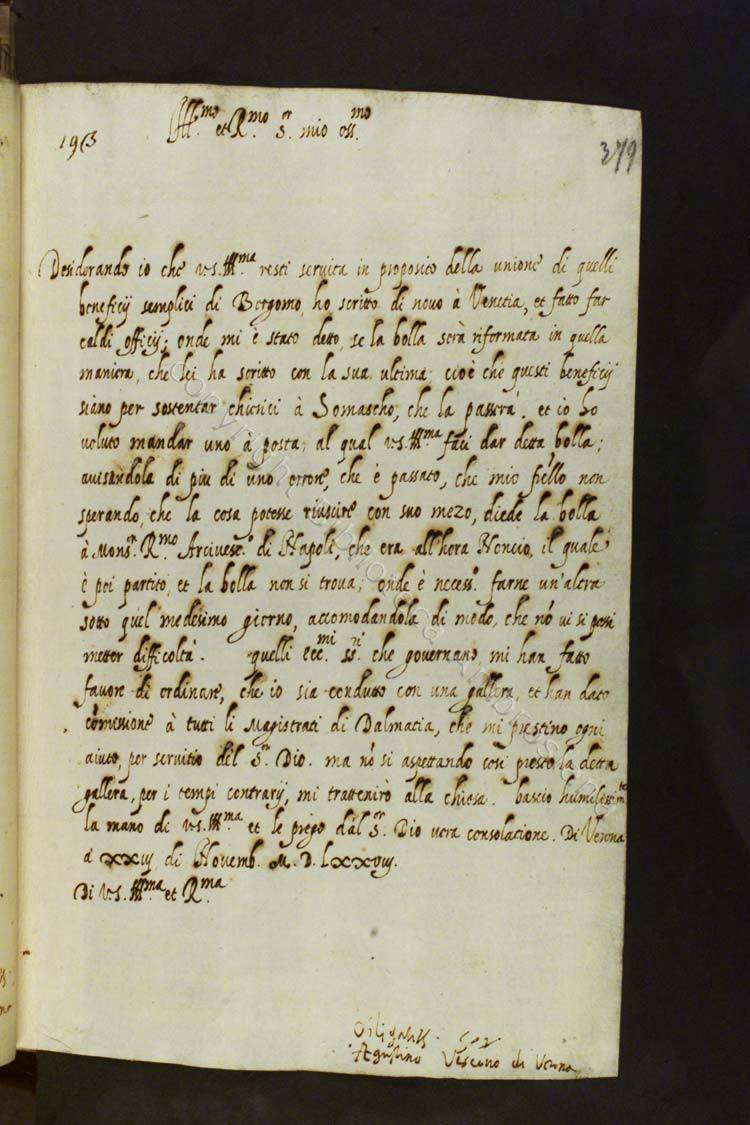 Ill.mo et R.mo S.r mio oss.mo
193
379
Desiderando io che V.S. Ill.ma resti servita in proposito della unione di quelli
beneficij semplici di Bergomo, ho scritto di novo à Venetia, et fatto far
caldi officij; onde mi è stato detto, se la bolla serà riformata in quella
maniera, che lei ha scritto con la sua ultima, cioè che questi beneficij
siano per sostentar chierici à Somascho, che la passerà. et io ho
voluto mandar uno à posta, al qual V.S. Ill.ma faci dar detta bolla;
avisandola di piu di uno errore, che è passato, che mio fr̃ello non
sperando, che la cosa potesse riuscire con suo mezo, diede la bolla
à Mons.r R.mo Arcivesc.o di Napoli, che era all'hora Noncio, il quale
è poi partito, et la bolla non si trova; onde è necess.o farne un'altra
sotto quel medesimo giorno, accomodandola di modo, che nõ vi si possi
metter difficoltà. quelli ecc.mi ss.ri che governano mi han fatto
favore di ordinare, che io sia condutto con una gallera, et han dato
cõmissione à tutti li Magistrati di Dalmatia, che mi prestino ogni
aiuto, per servitio del S.r Dio. ma nõ si aspettando cosi presto la detta
gallera, per i tempi contrarij, mi tratteniro alla chiesa. bascio humilissim.te
la mano de V.S. Ill.ma et le prego dal S.r Dio vera consolatione. Di Verona
à XXIIJ di Novemb. M. D. LXXVIIJ.
Di V.S. Ill.ma et R.ma
Agustino Vescovo di Verona
copyright Biblioteca Ambrosiana